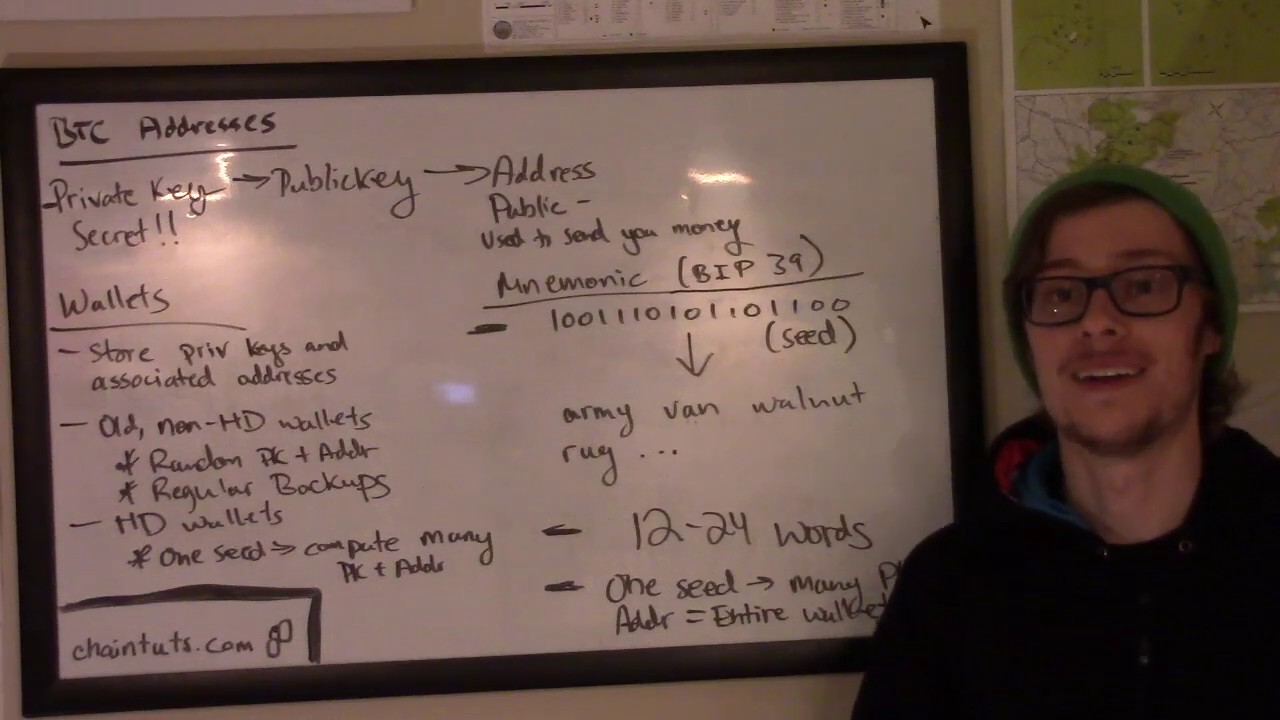 BTC Addresses
Private Key → Public Key → Address
Secret!!
Public -
Used to send you money
Wallets
- Store priv keys and
associated addresses
- Old, non-HD wallets
* Random PK + Addr
* Regular Backups
- HD wallets
* One seed → compute many
PK + Addr
chaintuts.com
Mnemonic (BIP 39)
- 1001110101101100
(seed)
↓
army van walnut
rug ...
- 12-24 words
- One seed → many P
Addr = Entire wallet